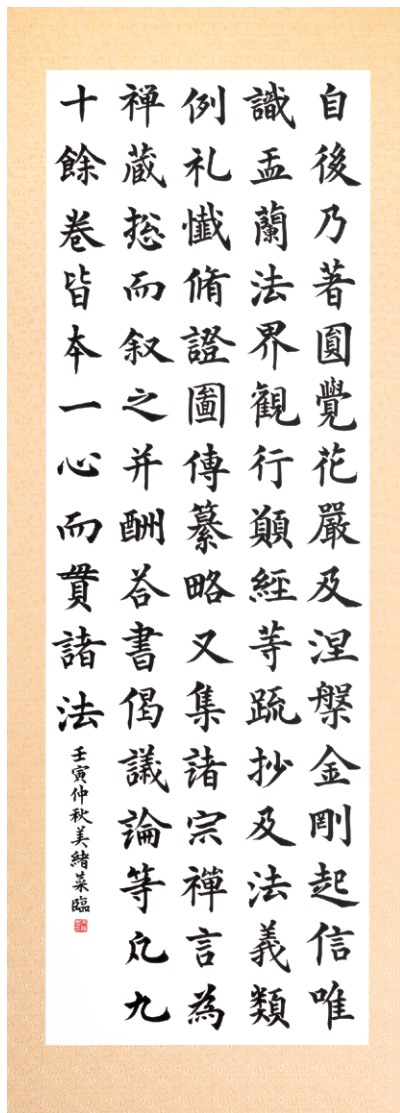 自後乃著圓覺花嚴及涅槃金剛起信唯
識盂蘭法界観行願経等䟽抄及法義類
例礼懺脩證圖傳纂略又集諸宗禪言為
禅蔵揔而叙之并酬荅書偈議論等凡九
十餘卷皆本一心而貫諸法
壬寅仲秋美緒菜臨